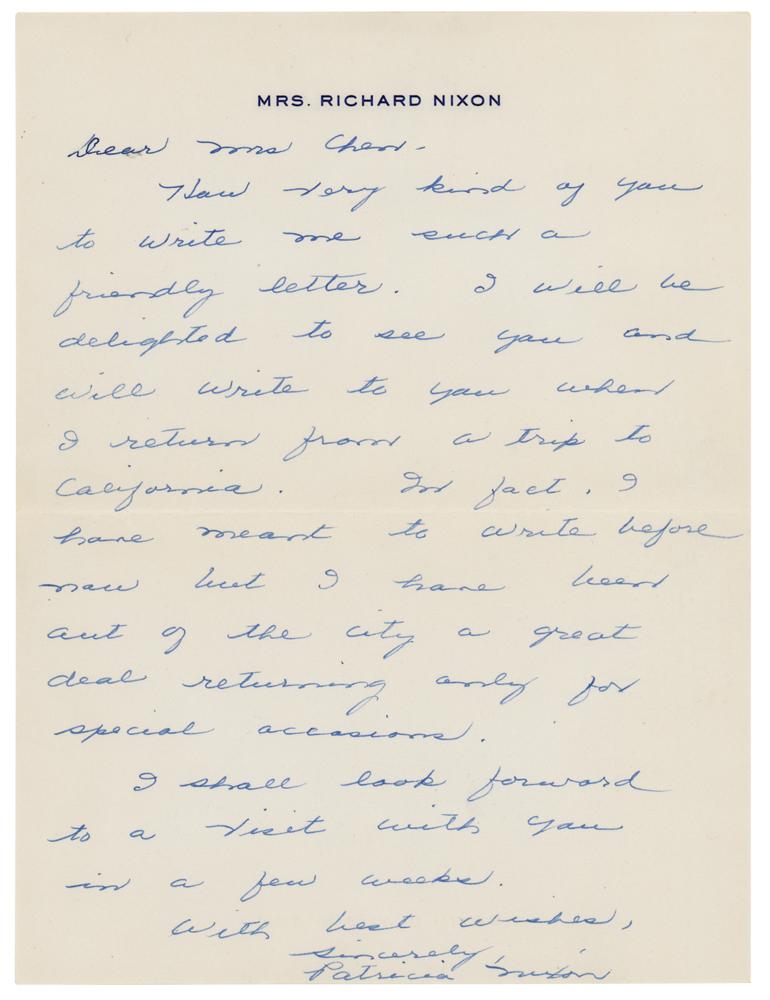 MRS. RICHARD NIXON
Dear Mrs Chen -
How very kind of you
to write me such a
friendly letter. I will be
delighted to see you and
will write to you when
I return from a trip to
California. In fact, I
have meant to write before
now but I have been
out of the city a great
deal returning only for
special occasions.
I shall look forward
to a visit with you
in a few weeks.
With best wishes,
Sincerely,
Patricia Nixon